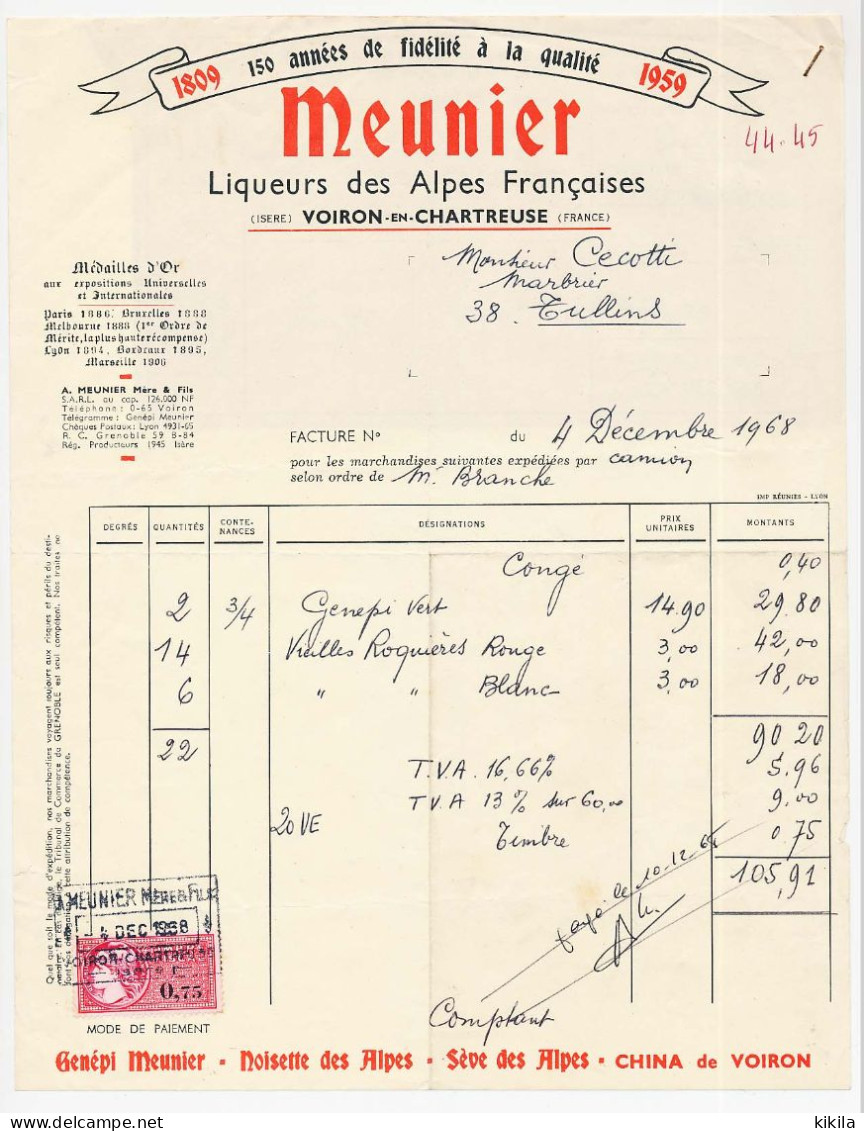 1809 150 années de fidélité à la qualité 1959
Meunier
44-45
Liqueurs des Alpes Françaises
(ISERE) VOIRON-EN-CHARTREUSE (FRANCE)
Monsieur Cecotti
Marbrier
38. Tullins
Médailles d'Or
aux expositions Universelles
et Internationales
Paris 1886. Bruxelles 1888
Melbourne 1888 (1er Ordre de
Mérite, la plus haute récompense)
Lyon 1894, Bordeaux 1895,
Marseille 1906
A. MEUNIER Mère & Fils
S.A.R.L. au cap. 126.000 NF
Téléphone : 0-65 Voiron
Télégramme : Genépi Meunier
Chèques Postaux : Lyon 4931-65
R. C. Grenoble 59 B-84
Rég. Producteurs 1945 Isère
FACTURE No du 4 Décembre 1968
pour les marchandises suivantes expédiées par camion
selon ordre de M. Branche
IMP RÉUNIES - LYON
DEGRÉS QUANTITÉS CONTE-NANCES DÉSIGNATIONS PRIX UNITAIRES MONTANTS
Congé 0,40
2 3/4 Genepi Vert 14.90 29.80
14 Vieilles Roquières Rouge 3,00 42,00
6 " " Blanc 3,00 18,00
22 90 20
T.V.A. 16,66% 5.96
T.V.A 13% sur 60,00 9.00
20 VE Timbre 0.75
105,91
payé le 10-12-68
Comptant
Quel que soit le mode d'expédition, nos marchandises voyagent toujours aux risques et périls du desti-
le Tribunal de Commerce de GRENOBLE est seul compétent. Nos traites ne
font pas cette attribution de compétence.
A. MEUNIER MÈRE & FILS
- 4 DEC 1968
VOIRON-CHARTREUSE
0,75
MODE DE PAIEMENT
Genépi Meunier - Noisette des Alpes - Sève des Alpes - CHINA de VOIRON
kikila